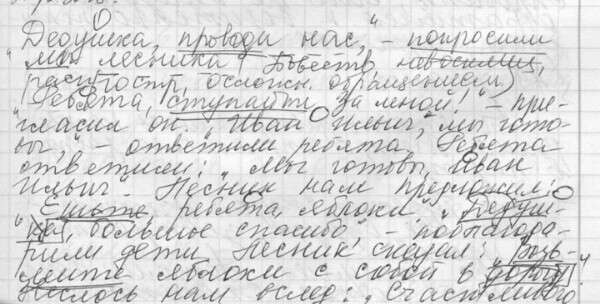 „Дедушка, проводи нас," – попросили
мы лесника. Повеств, невосклиц,
распростр, осложн. обращением)
„Ребята, ступайте за мной!" – при-
гласил он. „Иван Ильич, мы гото-
вы," – ответили ребята. Ребята
ответили: „Мы готовы, Иван
Ильич". Лесник нам предложил:
„Ешьте, ребята, яблоки". „Дедуш-
ка, большое спасибо" – поблагода-
рили дети. Лесник сказал: „Возь-
мите яблоки с собой в дорогу".
Неслось нам вслед: „Счастливого